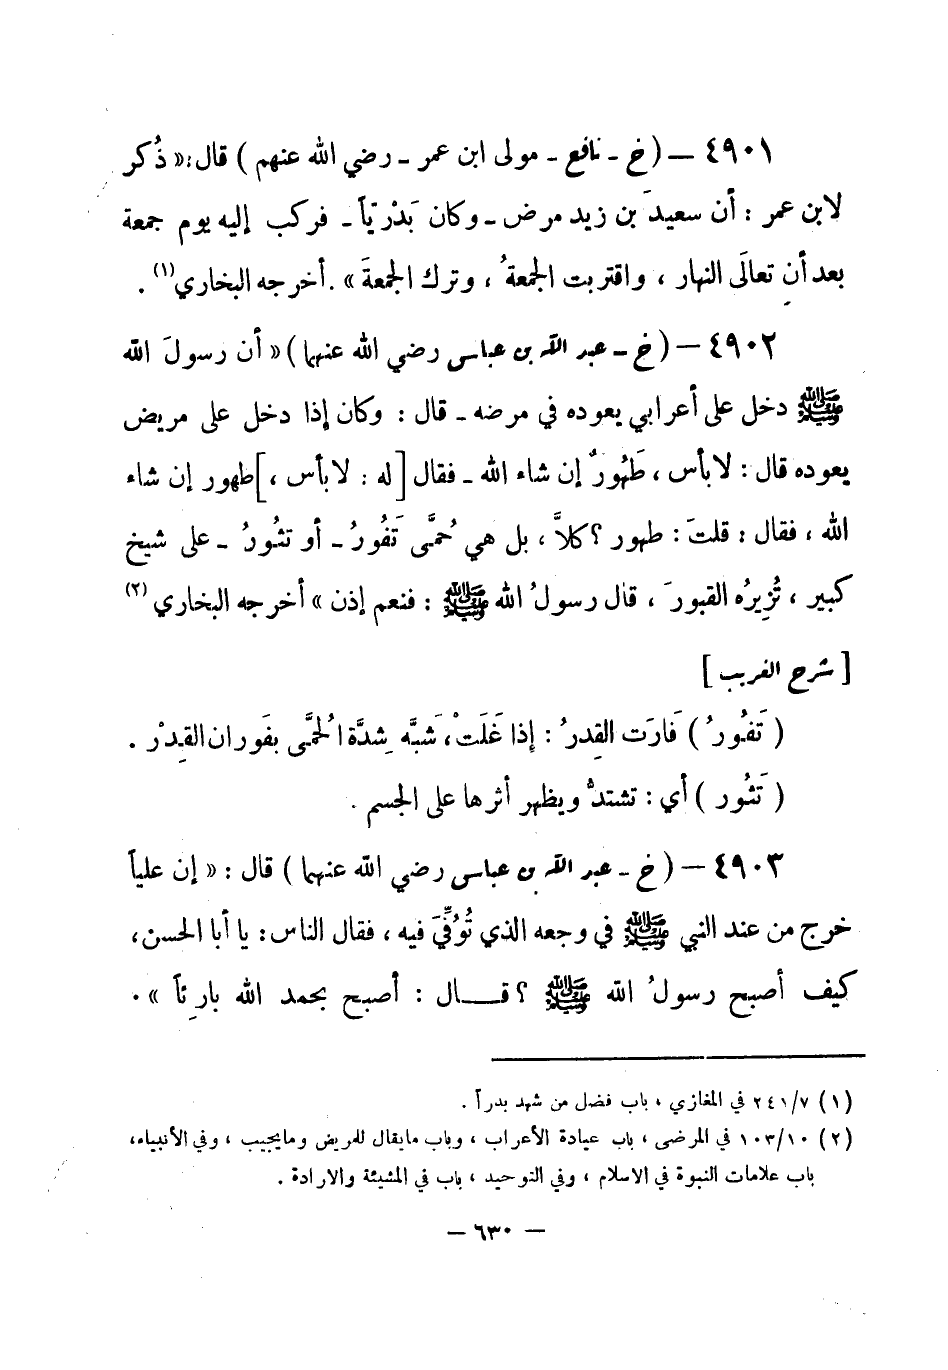 ٤٩٠١ — ( خ - نافع - مولى ابن عمر - رضي الله عنهم ) قال : « ذُكر
لابن عمر : أن سعيدَ بن زيد مرض - وكان بَدْرّياً - فركب إليه يوم جمعة
بعد أن تعالَى النهار ، واقتربت الجمعةُ ، وترك الجمعةَ » . أخرجه البخاري (١) .
٤٩٠٢ — ( خ - عبد الله بن عباس رضي الله عنهما ) « أن رسولَ الله
ﷺ دخل على أعرابي يعوده في مرضه - قال : وكان إذا دخل على مريض
يعوده قال : لا بأس ، طَهُورٌ إن شاء الله - فقال [ له : لا بأس ، ] طهور إن شاء
الله ، فقال : قلتَ : طهور ؟ كلاَّ ، بل هي حُمَّى تَفُورُ - أو تثُورُ - على شيخ
كبير ، تُزِيرُه القبورَ ، قال رسولُ الله ﷺ : فنعم إذن » أخرجه البخاري (٢)
[ شرح الغريب ]
( تَفُورُ ) فَارَت القِدرُ : إذا غَلَتْ ، شَبَّه شِدَّة الُحمَّى بفَوران القِدْر .
( تَثُور ) أي : تشتدُّ ويظهر أثرها على الجسم .
٤٩٠٣ — ( خ - عبد الله بن عباس رضي الله عنهما ) قال : « إن علياً
خرج من عند النبي ﷺ في وجعه الذي تُوُفِّيَ فيه ، فقال الناس : يا أبا الحسن ،
كيف أصبح رسولُ الله ﷺ ؟ قـــال : أصبح بحمد الله بارِئاً » .
(١) ٢٤١/٧ في المغازي ، باب فضل من شهد بدراً .
(٢) ١٠٣/١٠ في المرضى ، باب عيادة الأعراب ، وباب ما يقال للمريض وما يجيب ، وفي الأنبياء،
باب علامات النبوة في الاسلام ، وفي التوحيد ، باب في المشيئة والارادة .
— ٦٣٠ —